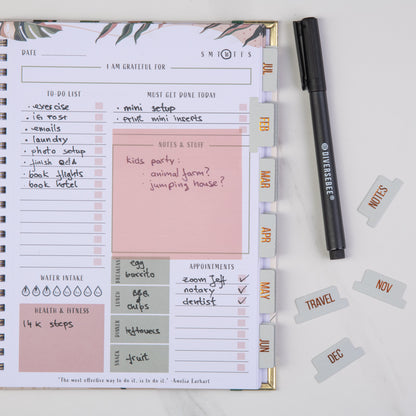 DATE
S M T W T F S
I AM GRATEFUL FOR
TO-DO LIST
exercise
emails
laundry
photo setup
finish ads
book flights
book hotel
MUST GET DONE TODAY
mini setup
print mini inserts
NOTES & STUFF
kids party:
animal farm?
jumping house?
WATER INTAKE
HEALTH & FITNESS
14 K steps
BREAKFAST
egg
burrito
LUNCH
BBQ
& chips
DINNER
leftovers
SNACK
fruit
APPOINTMENTS
zoom Jeff
notary
dentist
"The most effective way to do it, is to do it." -Amelia Earhart
JUL
FEB
MAR
APR
MAY
JUN
DIVERSEBEE
NOTES
NOV
TRAVEL
DEC